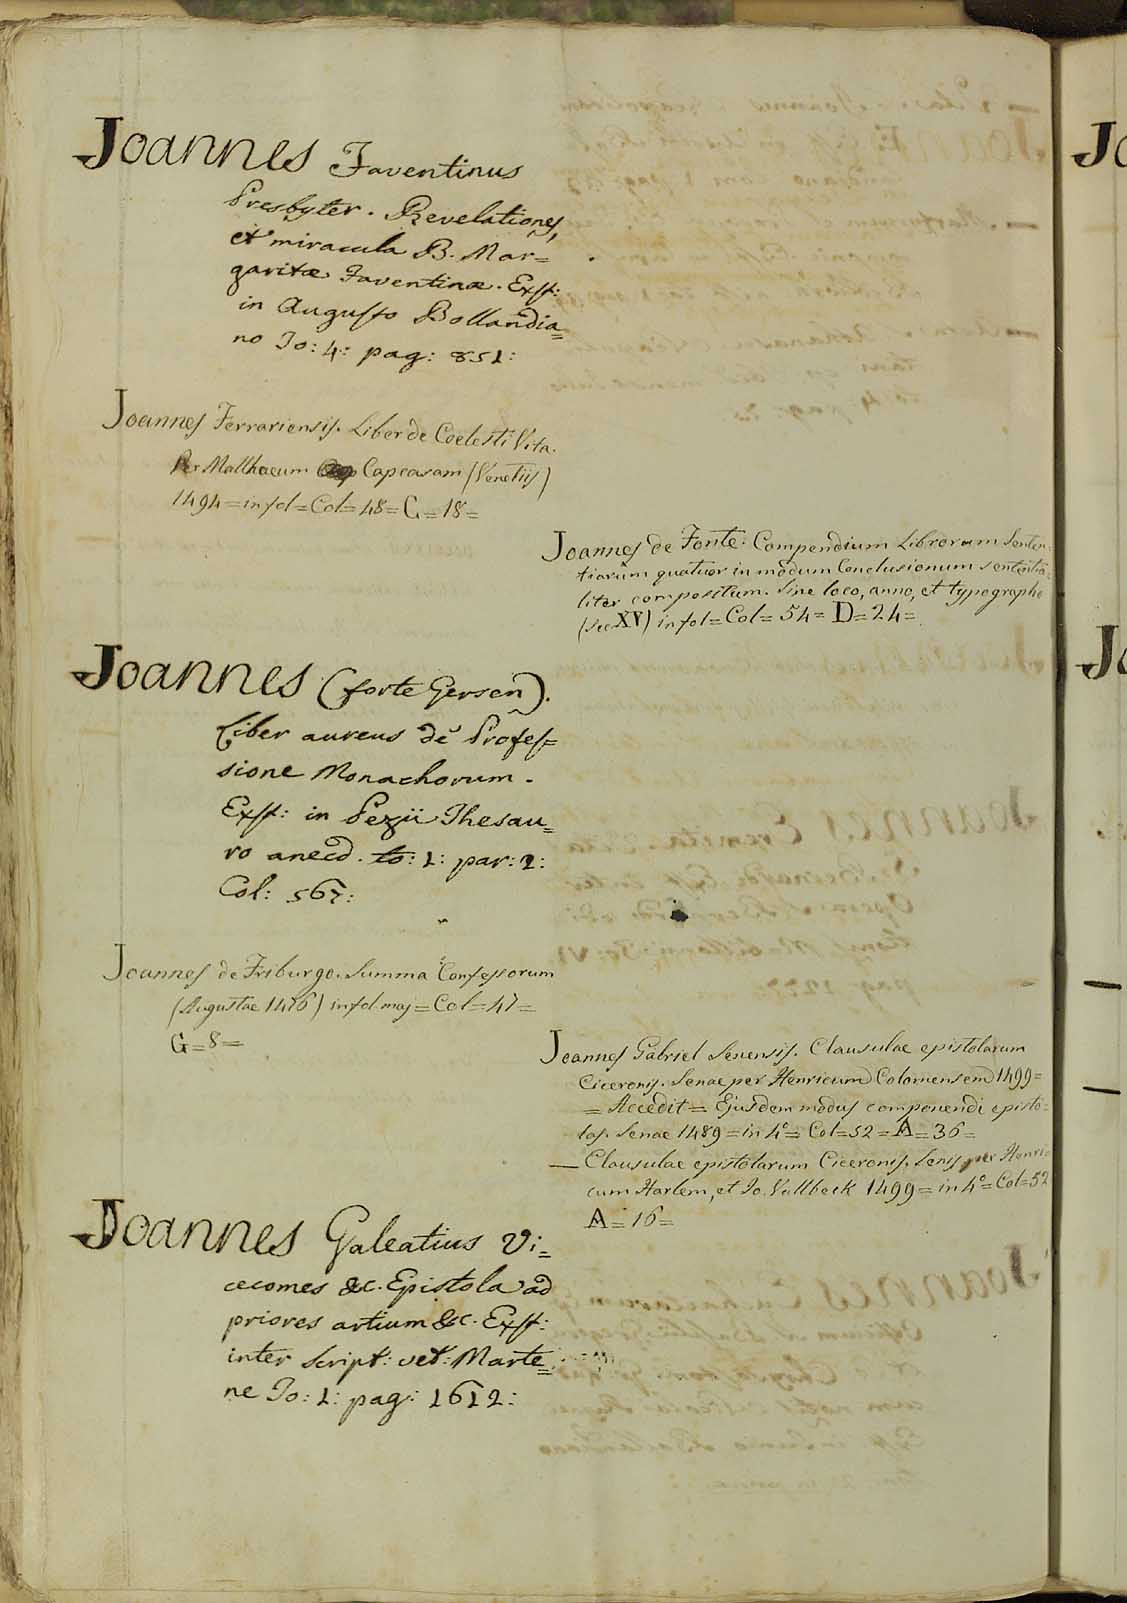 Joannes Faventinus
Presbyter. Revelationes,
et miracula B. Mar=
garitæ Faventinæ. Exst:
in Augusto Bollandia=
no To: 4: pag: 851:
Joannes Ferrariensis. Liber de Coelesti Vita.
Per Matthaeum Capcasam (Venetiis)
1494 = in fol = Col = 48 = G = 18 =
Joannes de Fonte. Compendium Librorum Senten=
tiarum quatuor in modum Conclusionum sententia=
liter compositum. Sine loco, anno, et typographo
(Sec XV) in fol = Col = 54 = D = 24 =
Joannes (forte Gersen).
Liber aureus de Profes=
sione Monachorum.
Exst: in Pezii Thesau=
ro anecd. to: 1: par: 2:
Col: 567:
Joannes de Friburgo. Summa Confessorum
(Augustae 1476) in fol. maj = Col = 47 =
G = 8 =
Joannes Gabriel Senensis. Clausulae epistolarum
Ciceronis. Senae per Henricum Coloniensem 1499 =
= Accedit = Ejusdem modus componendi episto=
las. Senae 1489 = in 4° = Col = 52 = A = 36 =
— Clausulae epistolarum Ciceronis. Senis, per Henri
cum Harlem, et Jo. Vallbeck 1499 = in 4° = Col = 52
A = 16 =
Joannes Galeatius Vi=
cecomes &c. Epistola ad
priores artium &c. Exst:
inter Script: vet: Marte=
ne To: 1: pag: 1612: